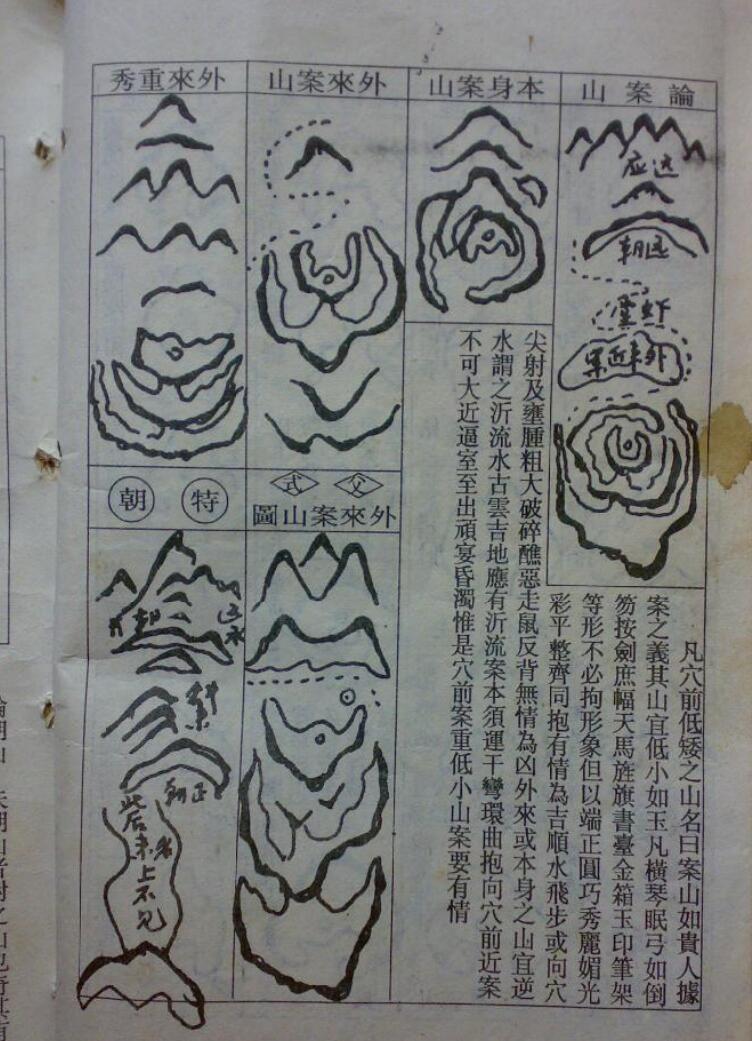 論案山
远应
远朝
外来近案
凡穴前低矮之山名曰案山如貴人據
案之義其山宜低小如玉凡橫琴眠弓如倒
笏按劍庶幅天馬旌旗書臺金箱玉印筆架
等形不必拘形象但以端正圓巧秀麗媚光
彩平整齊同抱有情為吉順水飛步或向穴
尖射及壅腫粗大破碎醮惡走鼠反背無情為凶外來或本身之山宜逆
水謂之沂流水古雲吉地應有沂流案本須運干彎環曲抱向穴前近案
不可大近逼室至出頑宴昏濁惟是穴前案重低小山案要有情
本身案山
外來案山
父式
外來案山圖
外來重秀
特朝
朝
正朝
此后
上不见